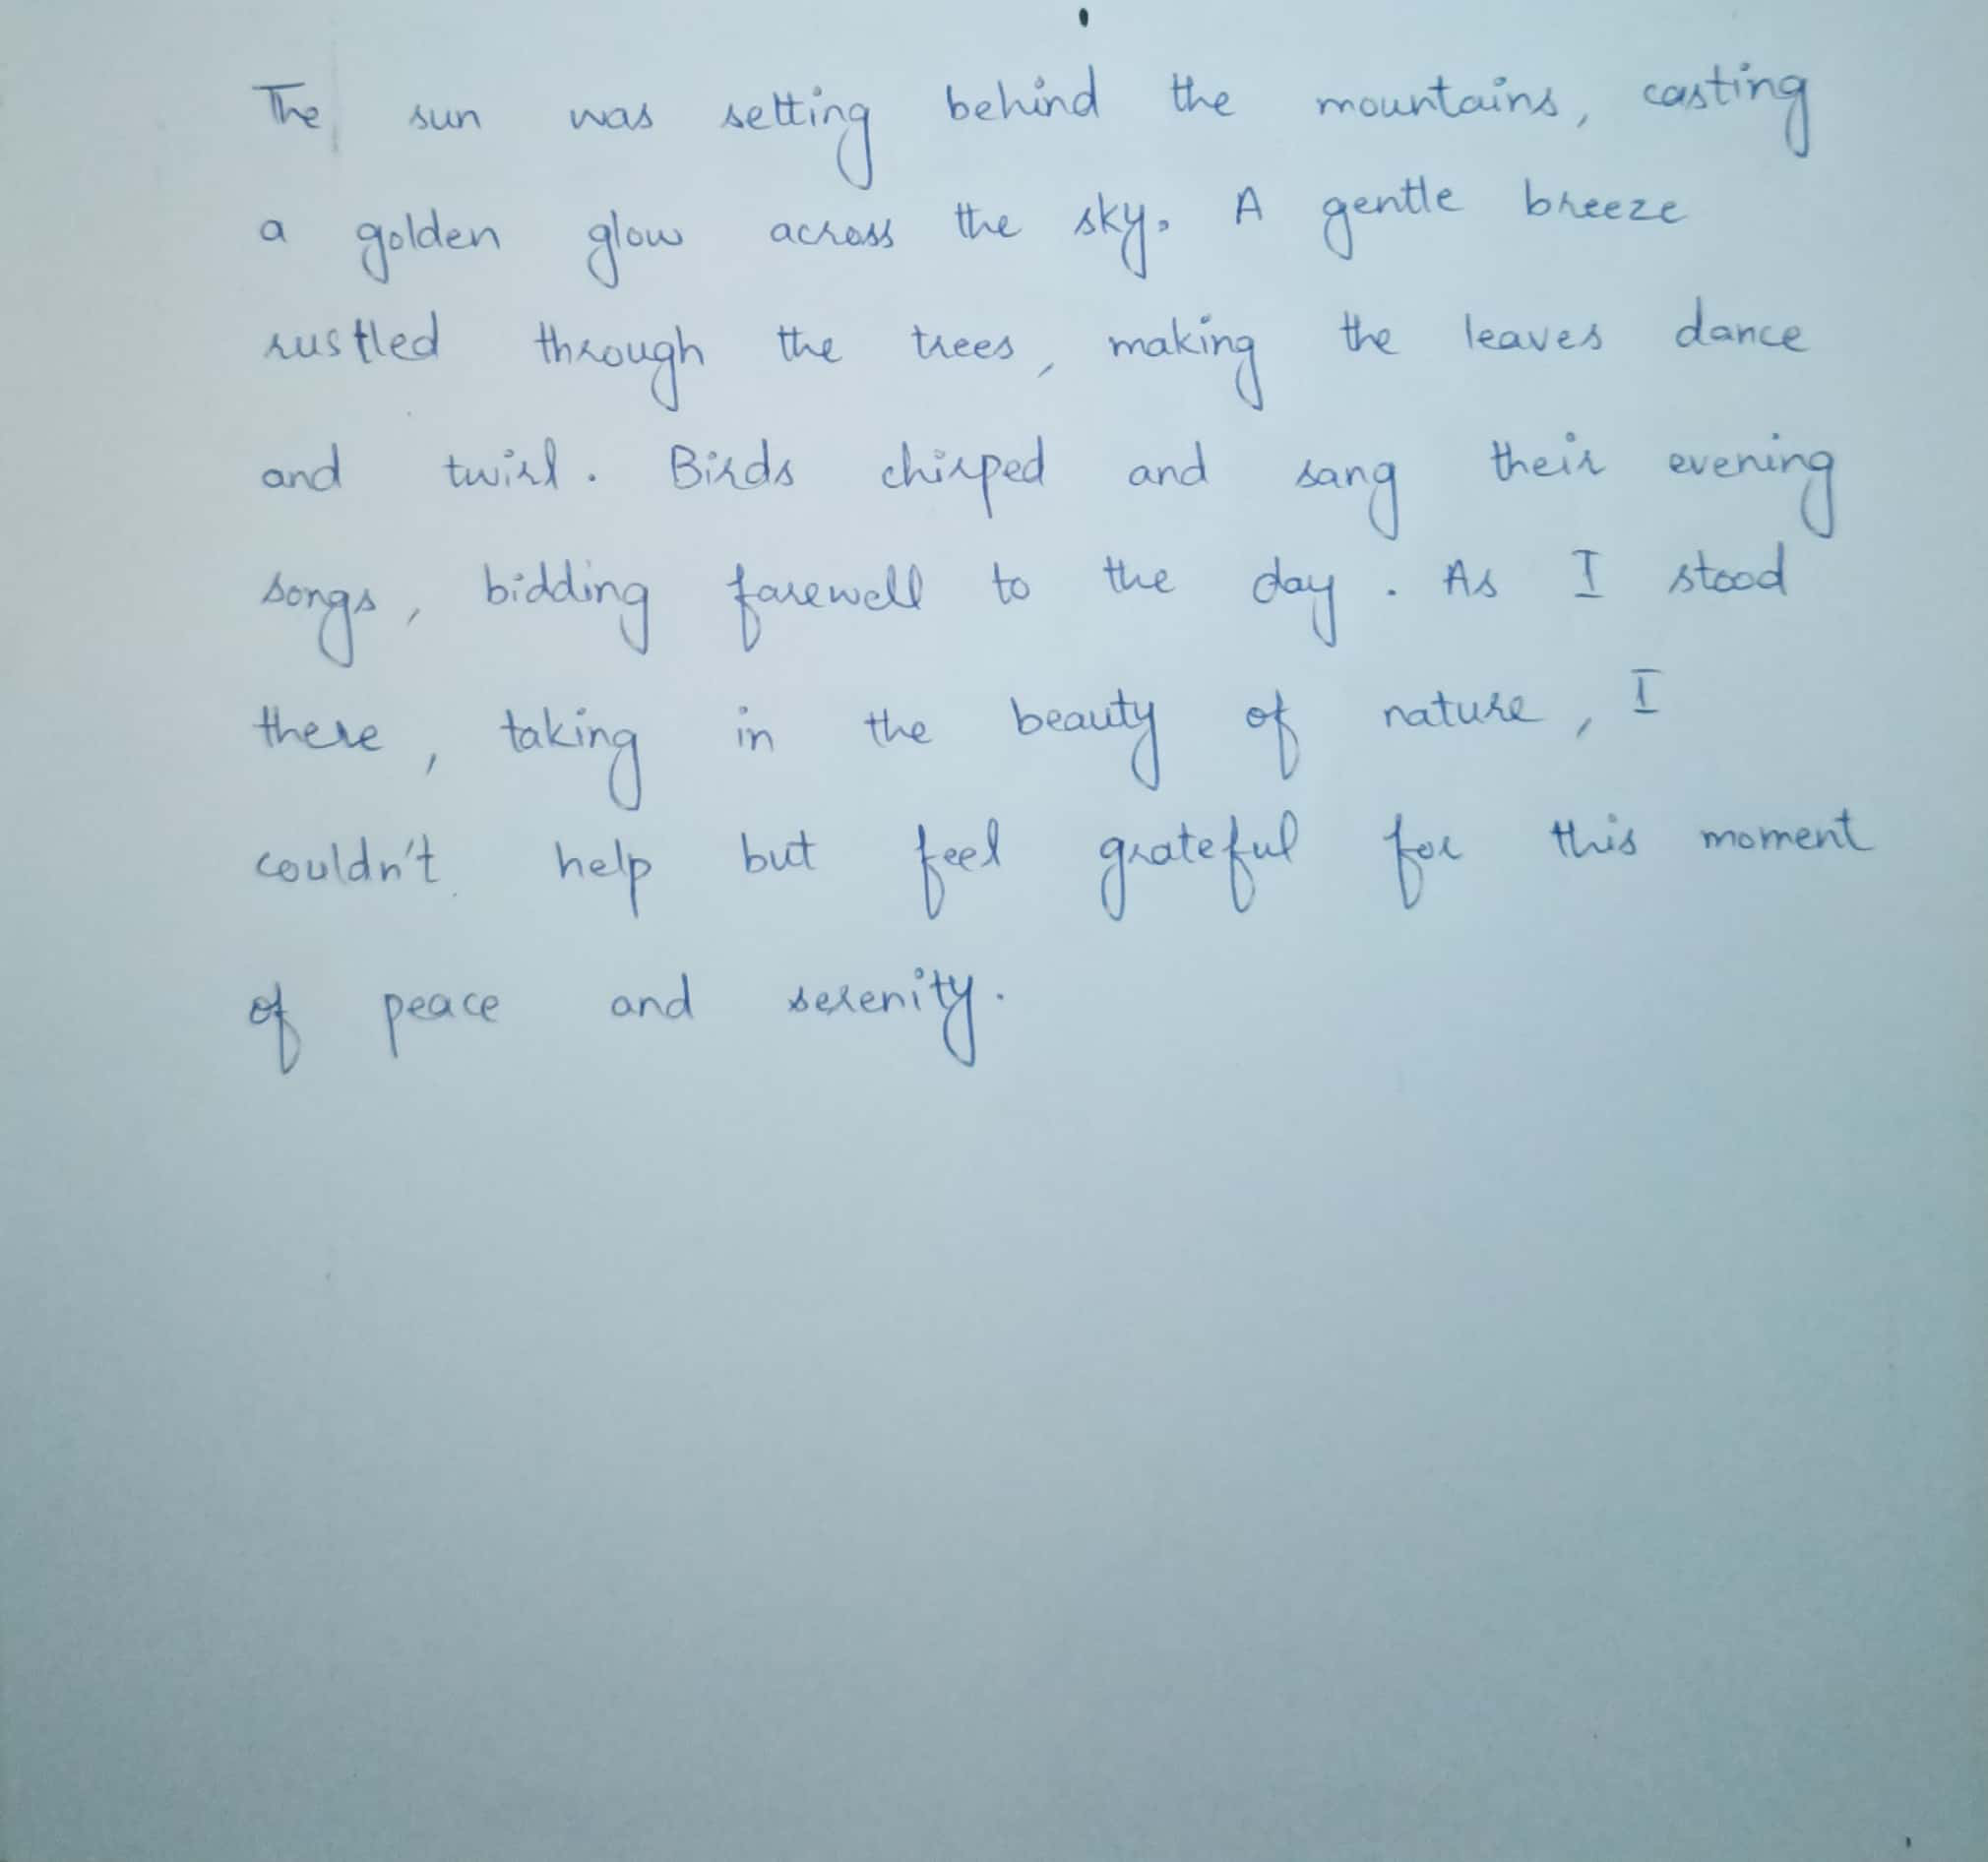 The sun was setting behind the mountains, casting
a golden glow across the sky. A gentle breeze
rustled through the trees, making the leaves dance
and twirl. Birds chirped and sang their evening
songs, bidding farewell to the day. As I stood
there, taking in the beauty of nature, I
couldn't help but feel grateful for this moment
of peace and serenity.